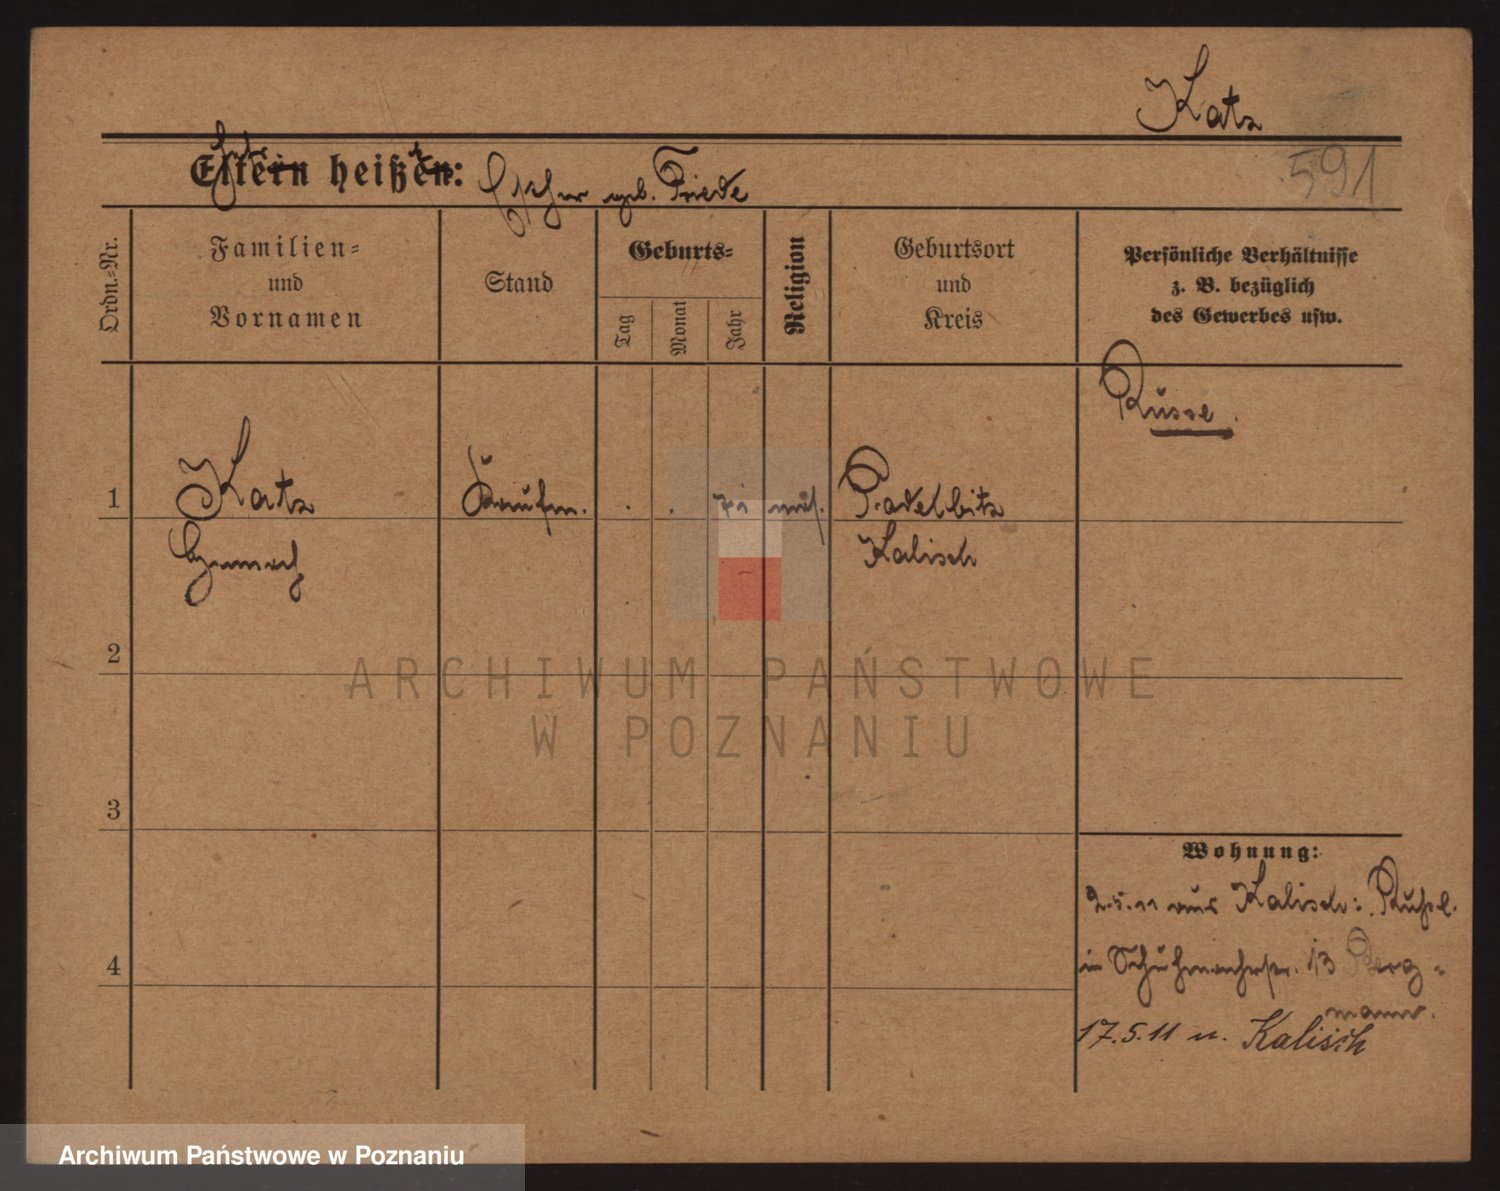 Katz
591
Eltern heißen: Esther geb. Friede
Ordn.-Nr.
Familien-
und
Vornamen
Stand
Geburts-
Tag
Monat
Jahr
Religion
Geburtsort
und
Kreis
Persönliche Verhältnisse
z. B. bezüglich
des Gewerbes usw.
Russe.
1
Katz
Kaufm.
mos.
Kalisch
2
ARCHIWUM PAŃSTWOWE
W POZNANIU
3
4
Wohnung:
2.5.11 aus Kalisch: Rußl.
in Schuhmacherstr. 13 Berg-
mann.
17.5.11 n. Kalisch
Archiwum Państwowe w Poznaniu